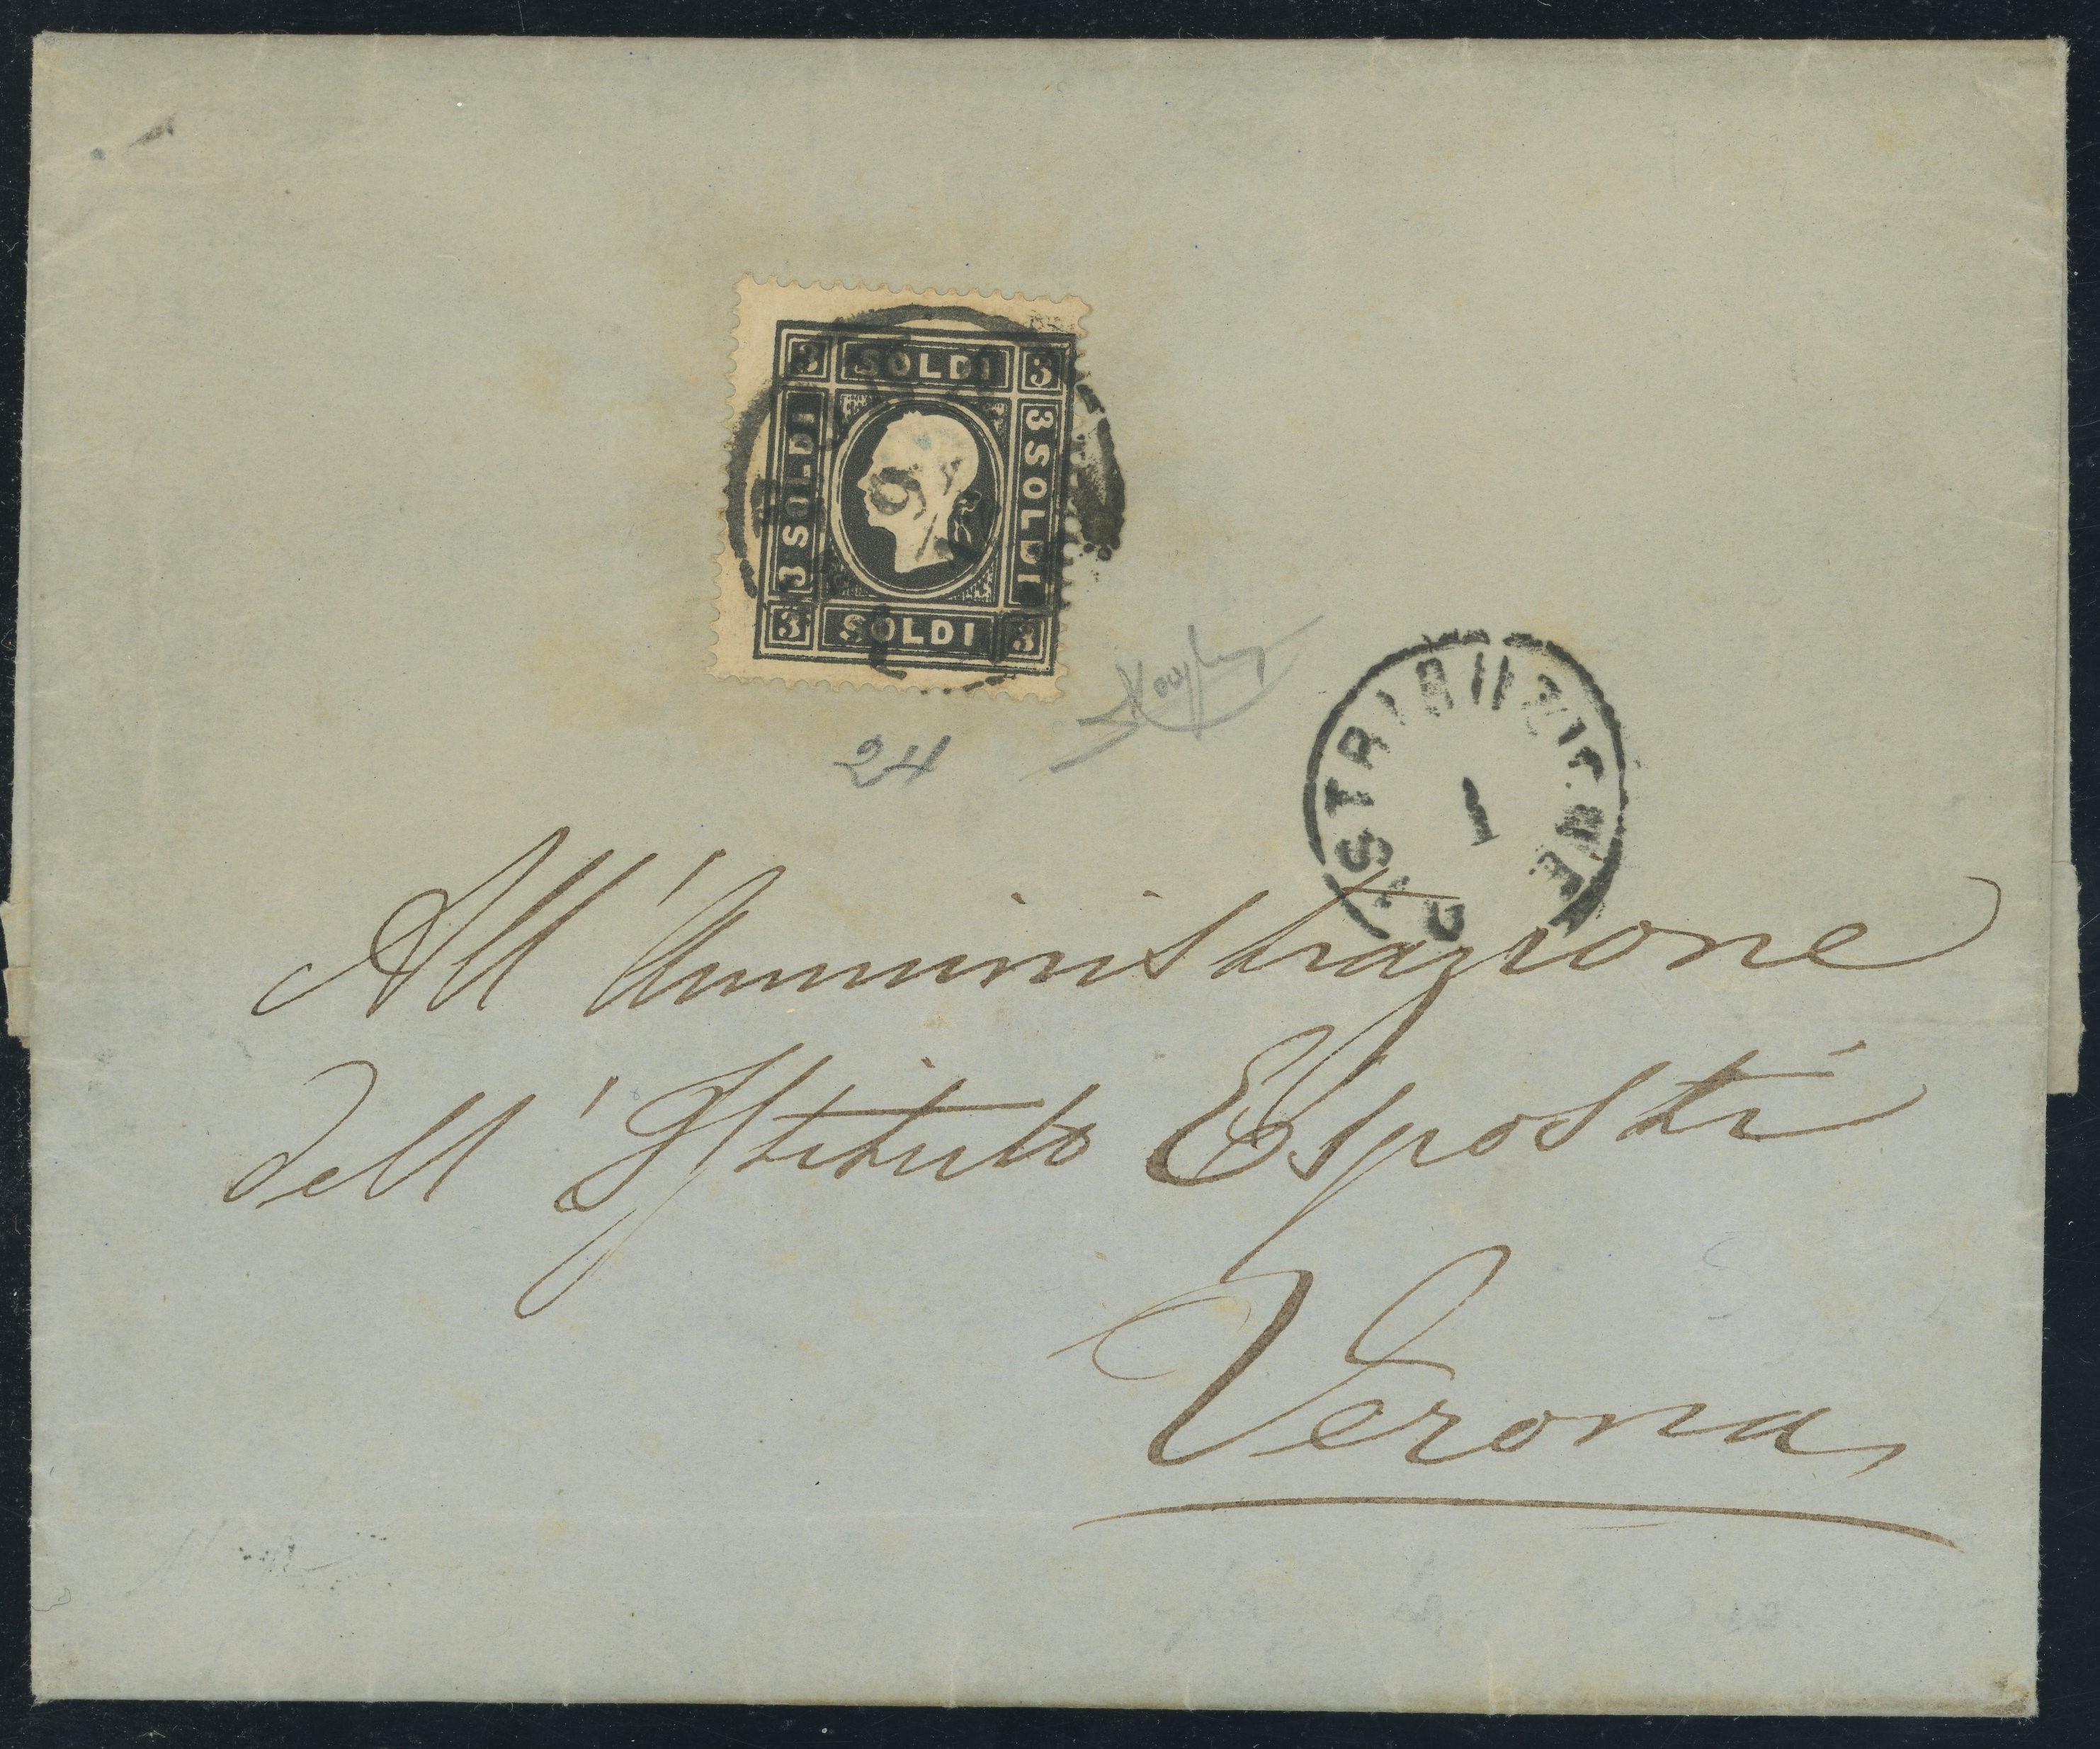 3 SOLDI 3
3 SOLDI
3 SOLDI
3 SOLDI 3
9
24
DISTRIBUZIONE
1
All'Amministrazione
dell'Istituto Esposti
Verona